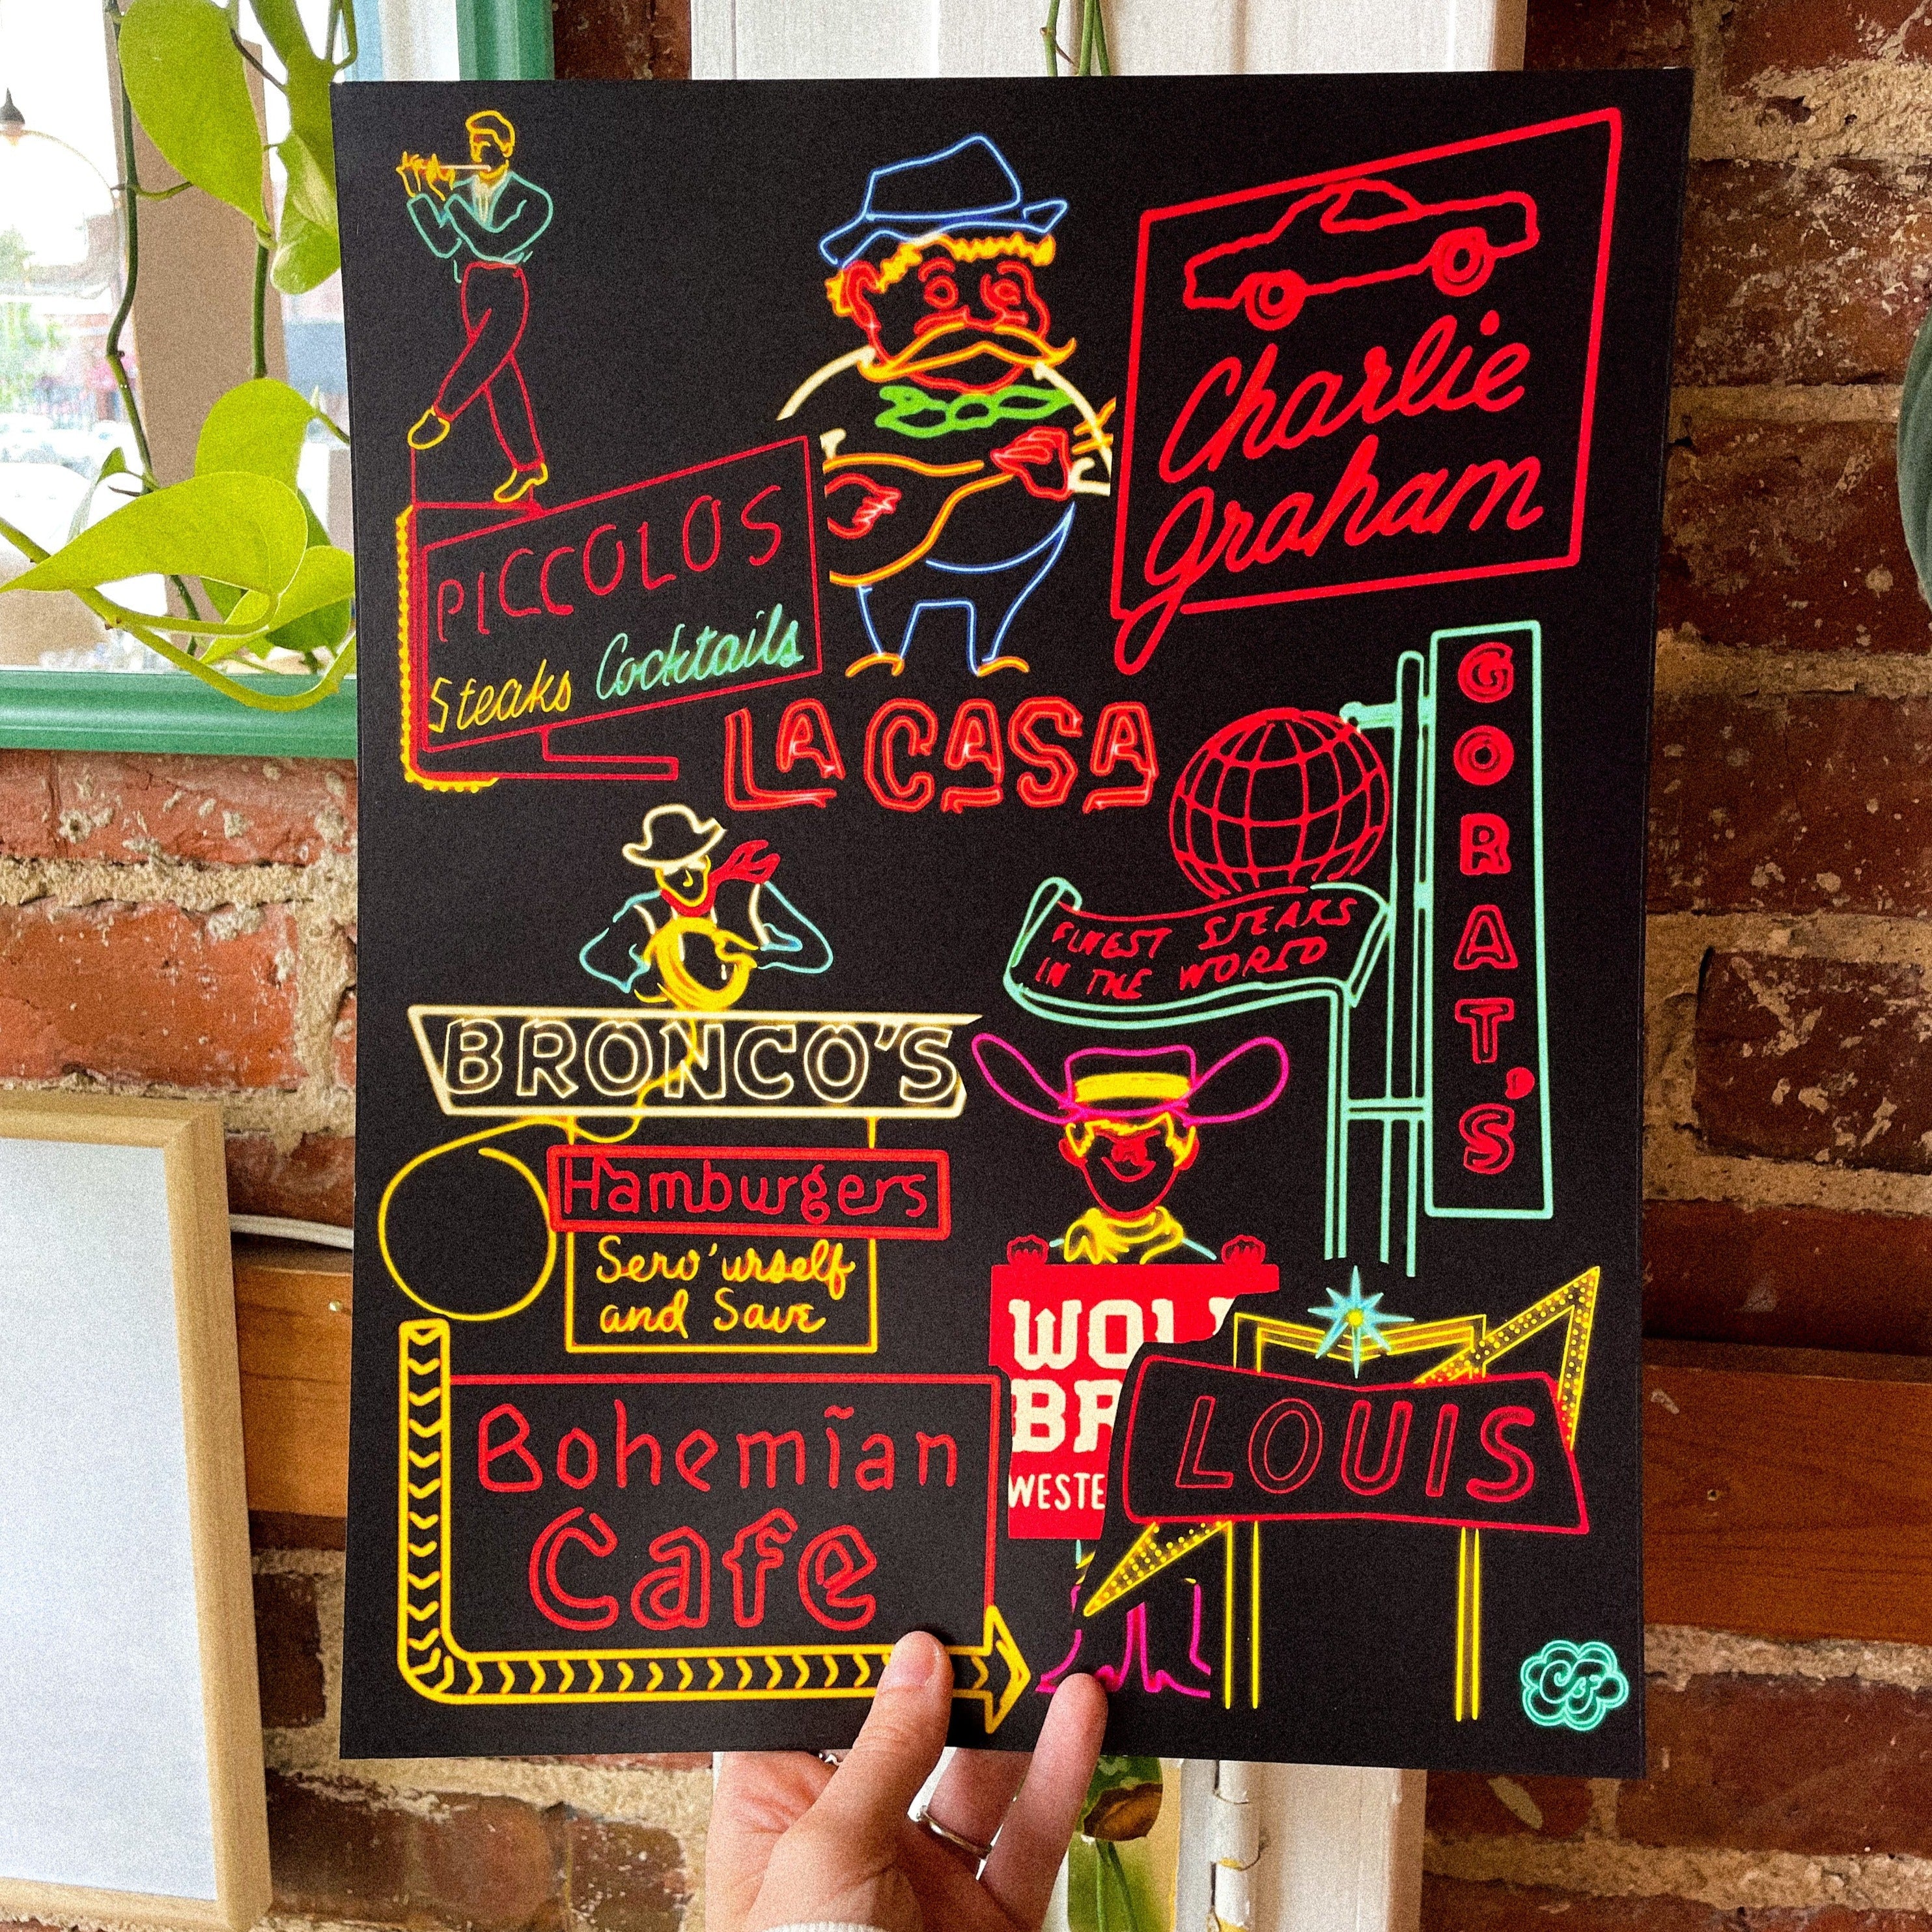 PICCOLOS
Steaks Cocktails
LA CASA
Charlie
Graham
GORAT'S
FINEST STEAKS
IN THE WORLD
BRONCO'S
Hamburgers
Serv'urself
and Save
WOL
BR
WESTE
Bohemian
Cafe
LOUIS